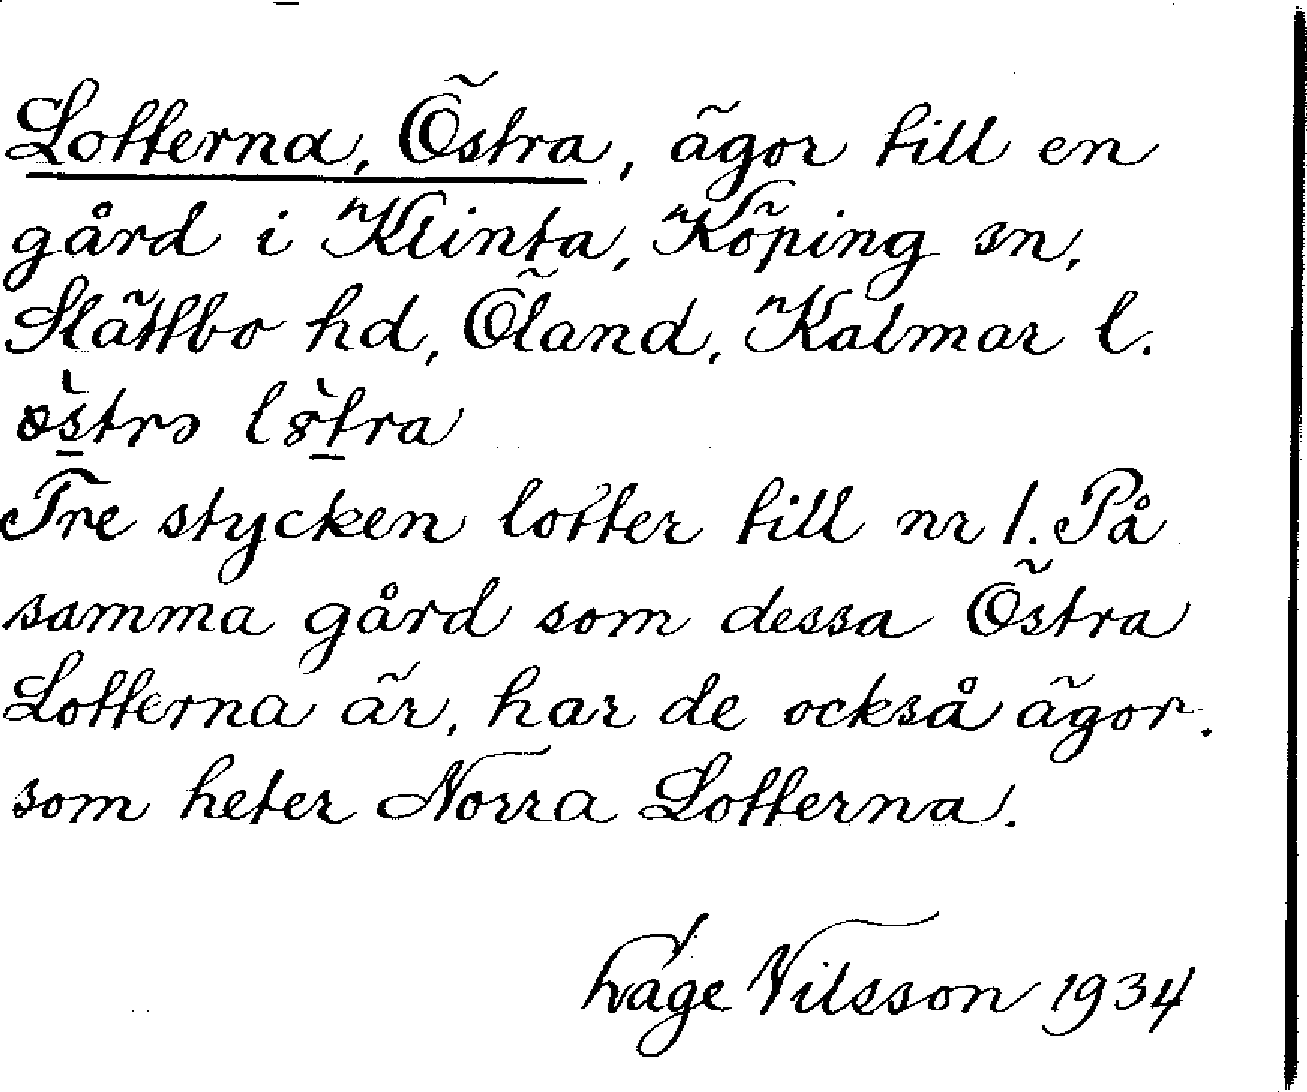 Lotterna, Östra, ägor till en
gård i Klinta, Köping sn,
Slättbo hd, Öland, Kalmar l.
Tre stycken lotter till nr 1. På
samma gård som dessa Östra
Lotterna är, har de också ägor.
som heter Norra Lotterna.
Nilsson 1934